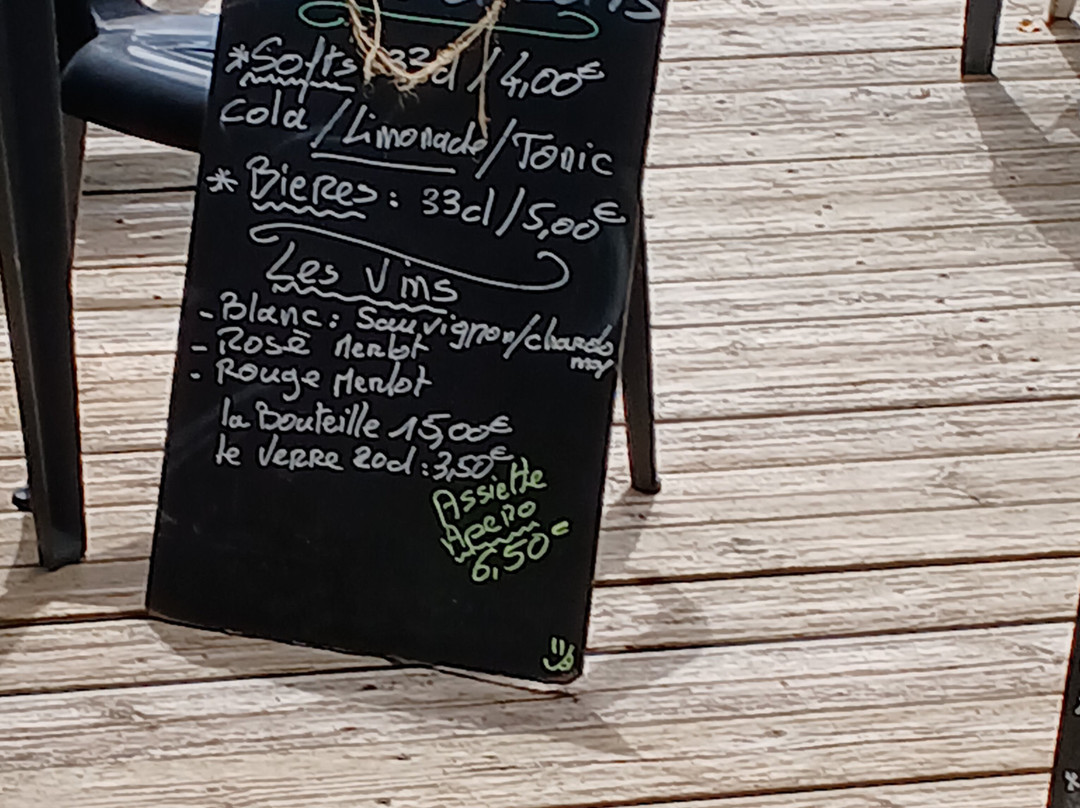 *Softs 33cl/4,00€
Cola/Limonade/Tonic
* Bieres: 33cl/5,00€
Les Vins
- Blanc: Sauvignon/chardo
nay
- Rosé Merlot
- Rouge Merlot
la Bouteille 15,00€
le Verre 20cl:3,50€
Assiette
Apero
6,50€